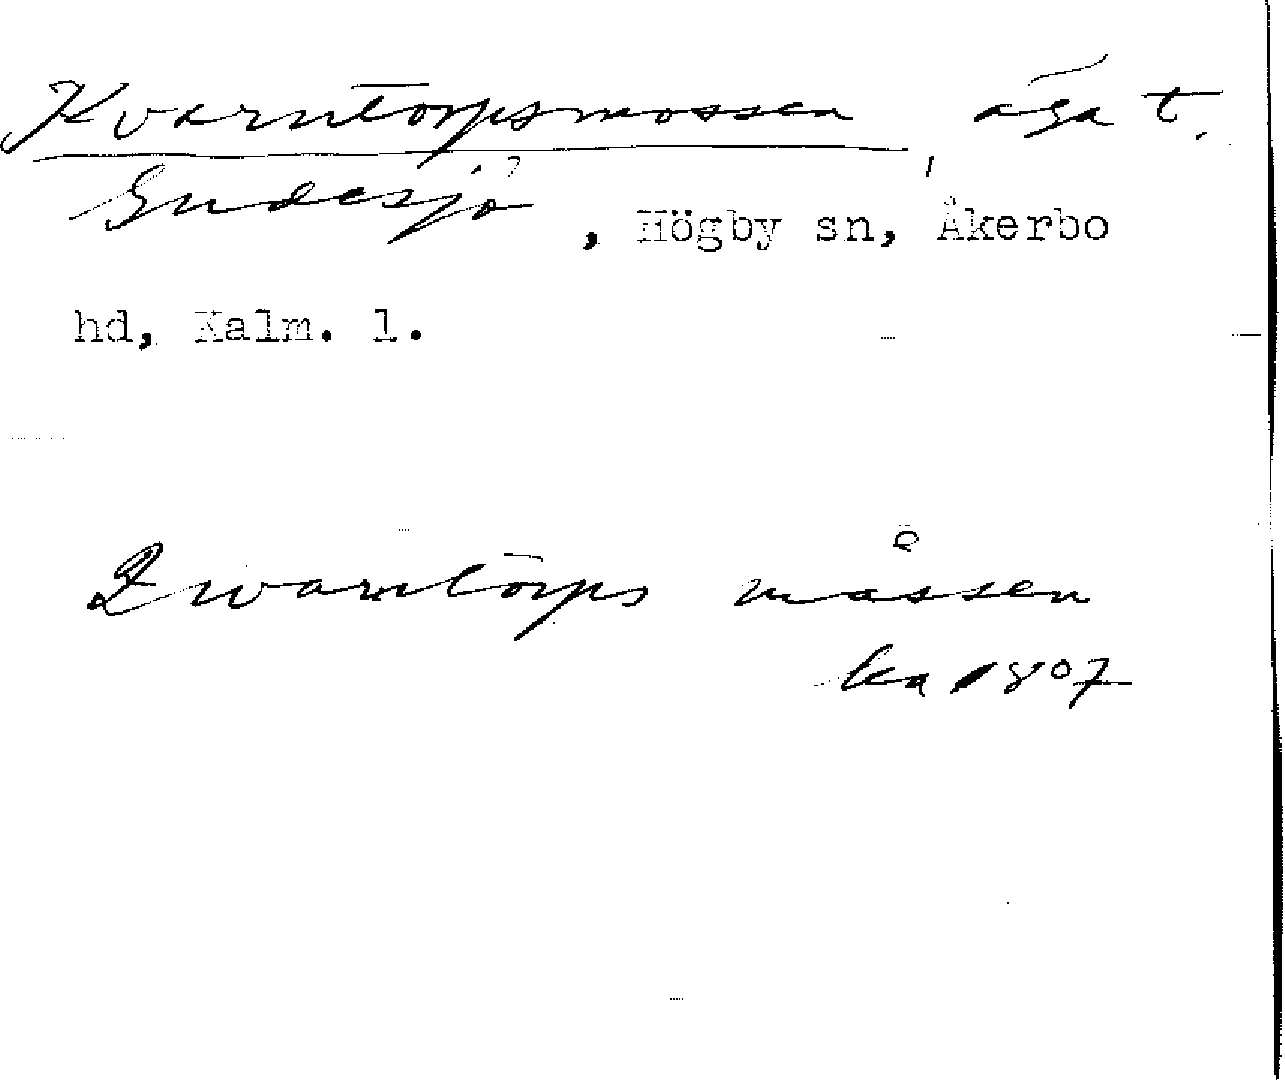 Kvarntorpsmossen, äga t.
Gudesjö, Högby sn, Åkerbo
hd, Kalm. l.
Qwarntorps måssen
ka 1807